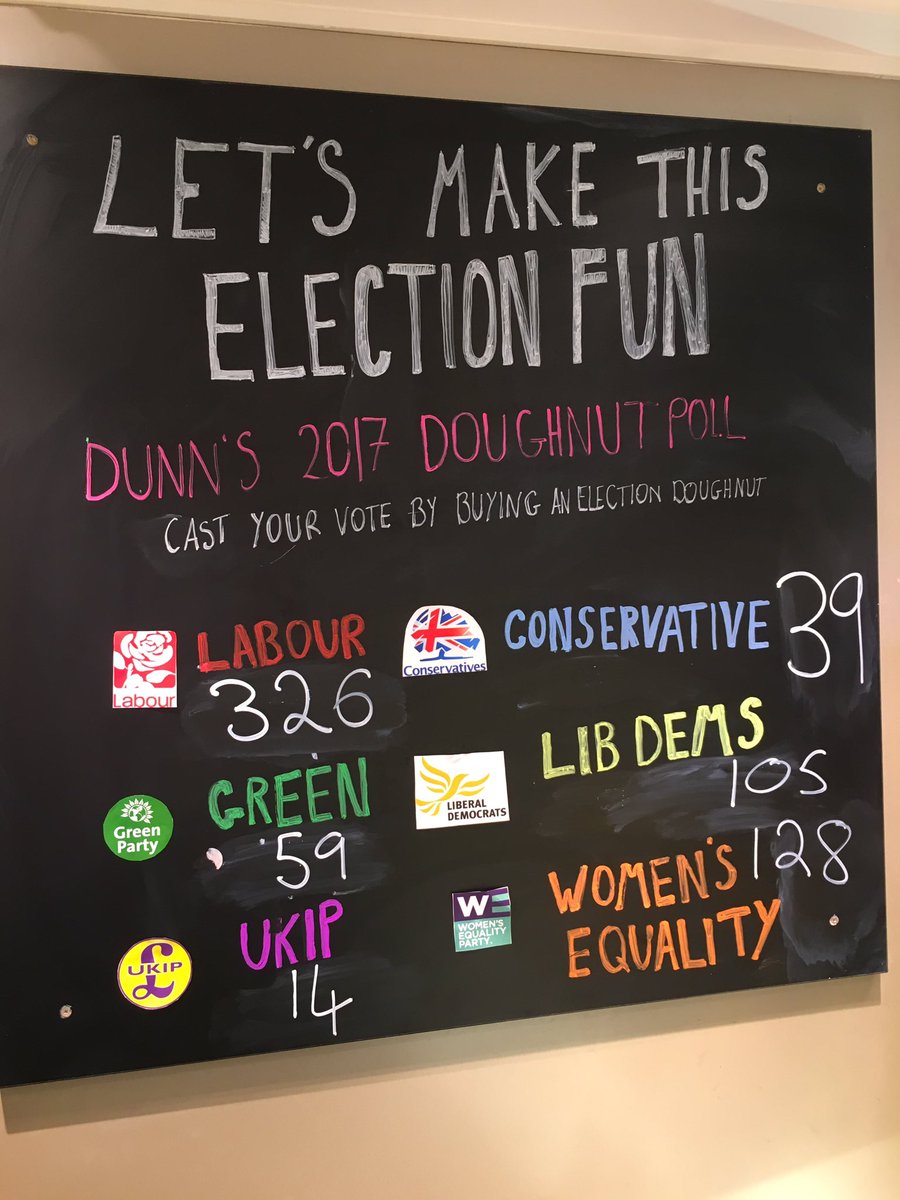 LET'S MAKE THIS
ELECTION FUN
DUNN'S 2017 DOUGHNUT POLL
CAST YOUR VOTE BY BUYING AN ELECTION DOUGHNUT
Labour
LABOUR
326
Conservatives
CONSERVATIVE 39
Green
Party
GREEN
59
LIBERAL
DEMOCRATS
LIB DEMS
105
UKIP
£
UKIP
14
WE
WOMEN'S
EQUALITY
PARTY.
WOMEN'S 128
EQUALITY